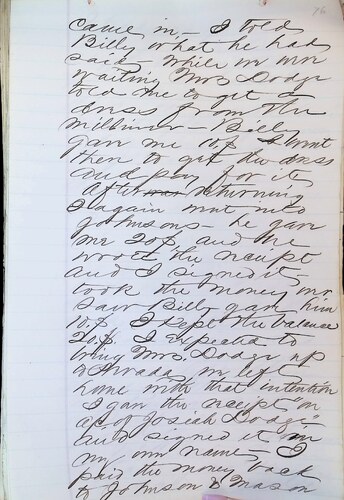 76
came in, - I told
Billy what he had
said - while we were
waiting Mrs Dodge
told me to get a
dress from the
milliner - Billy
gave me 10.$ I went
then to get the dress
and pay for it
After returning
I again went into
Johnsons - he gave
me 20$ and he
wrote the receipt
and I signed it -
took the money we
saw Billy gave him
10.$ I kept the balance
20.$. I expected to
bring Mrs. Dodge up
to Nevada, we left
home with that intention
I gave the "receipt" on
a/c of Josiah Dodge
and signed it in
my own name, I
paid the money back
to Johnson & Mason